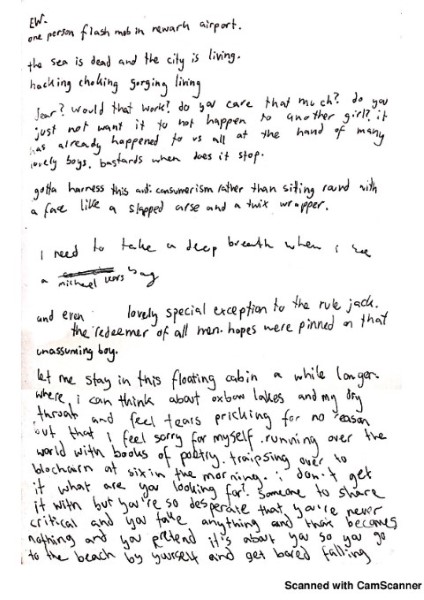 EW.
one person flash mob in newark airport.
the sea is dead and the city is living.
hacking choking gorging living
fear? would that work? do you care that much? do you
just not want it to not happen to another girl? it
has already happened to us all at the hand of many
lovely boys, bastards when does it stop.
gotta harness this anti consumerism rather than sitting round with
a face like a slapped arse and a twix wrapper.
I need to take a deep breath when i see
a michael kors bag
and even lovely special exception to the rule jack.
the redeemer of all men. hopes were pinned on that
unassuming boy.
let me stay in this floating cabin a while longer.
where i can think about oxbow lakes and my dry
throat and feel tears pricking for no reason
but that i feel sorry for myself. running over the
world with books of poetry. traipsing over to
at six in the morning. i don't get
it what are you looking for? someone to share
it with but you're so desperate that you're never
critical and you take anything and that becomes
nothing and you pretend it's about you so you go
to the beach by yourself and get bored falling
Scanned with CamScanner